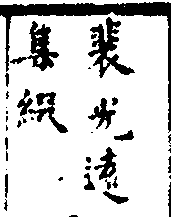 裴光遠
集綴